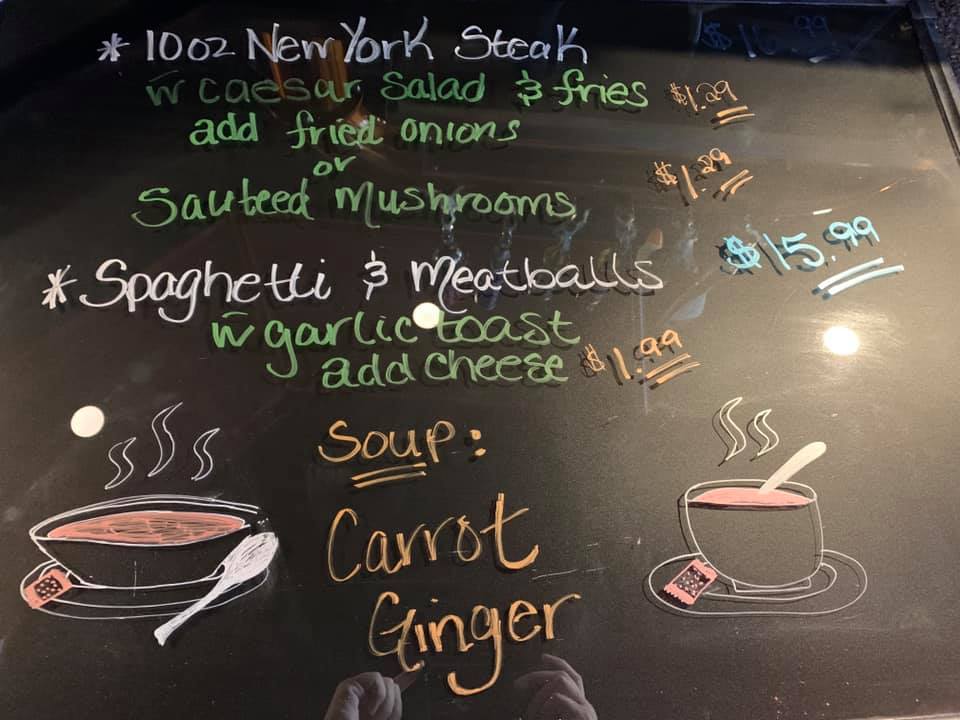 * 10oz New York Steak
w̄ caesar salad & fries $1.29
add fried onions
or
Sauteed Mushrooms $1.29
* Spaghetti & Meatballs $15.99
w̄ garlic toast
add cheese $1.99
Soup:
Carrot
Ginger